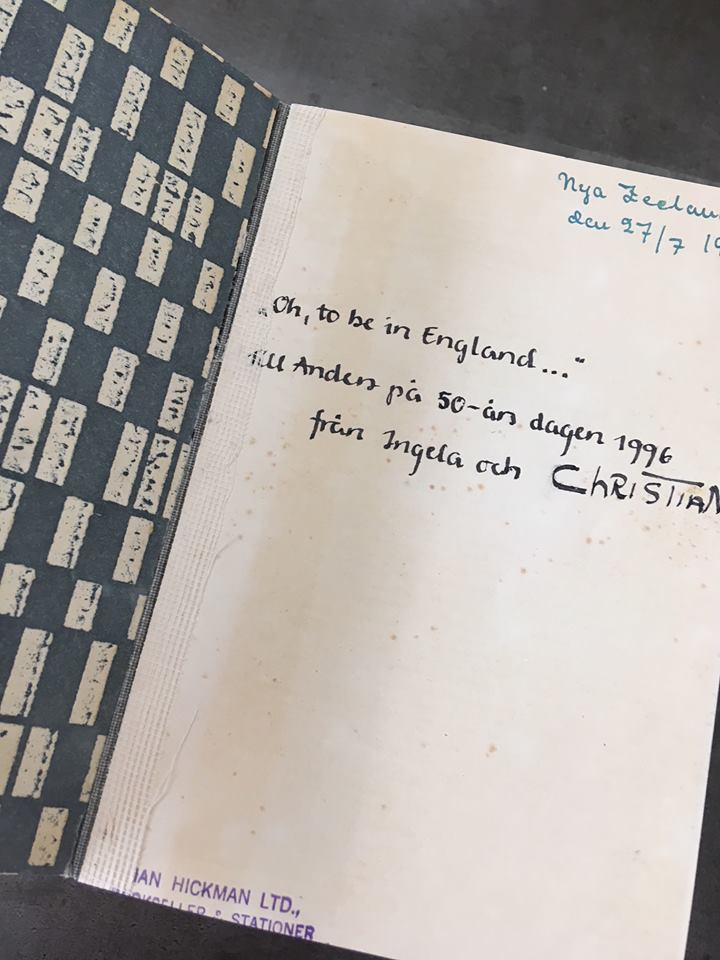 Nya
den 27/7
„Oh, to be in England..."
till Anders på 50-års dagen 1996
från Ingela och CHRISTIAN
HICKMAN LTD.,
& STATIONER